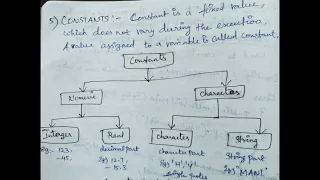 5) CONSTANTS :- Constant is a fixed value,
which does not vary during the execution.
A value assigned to a variable is called constant.
Constants
Numeric
Character
Integer
Real
character
String
Eg:- 123,
-45,
decimal part
Eg) 12.7,
-15.3
character part
Eg) 'H', 'y'
single quotes
String part
Eg) "MANI"